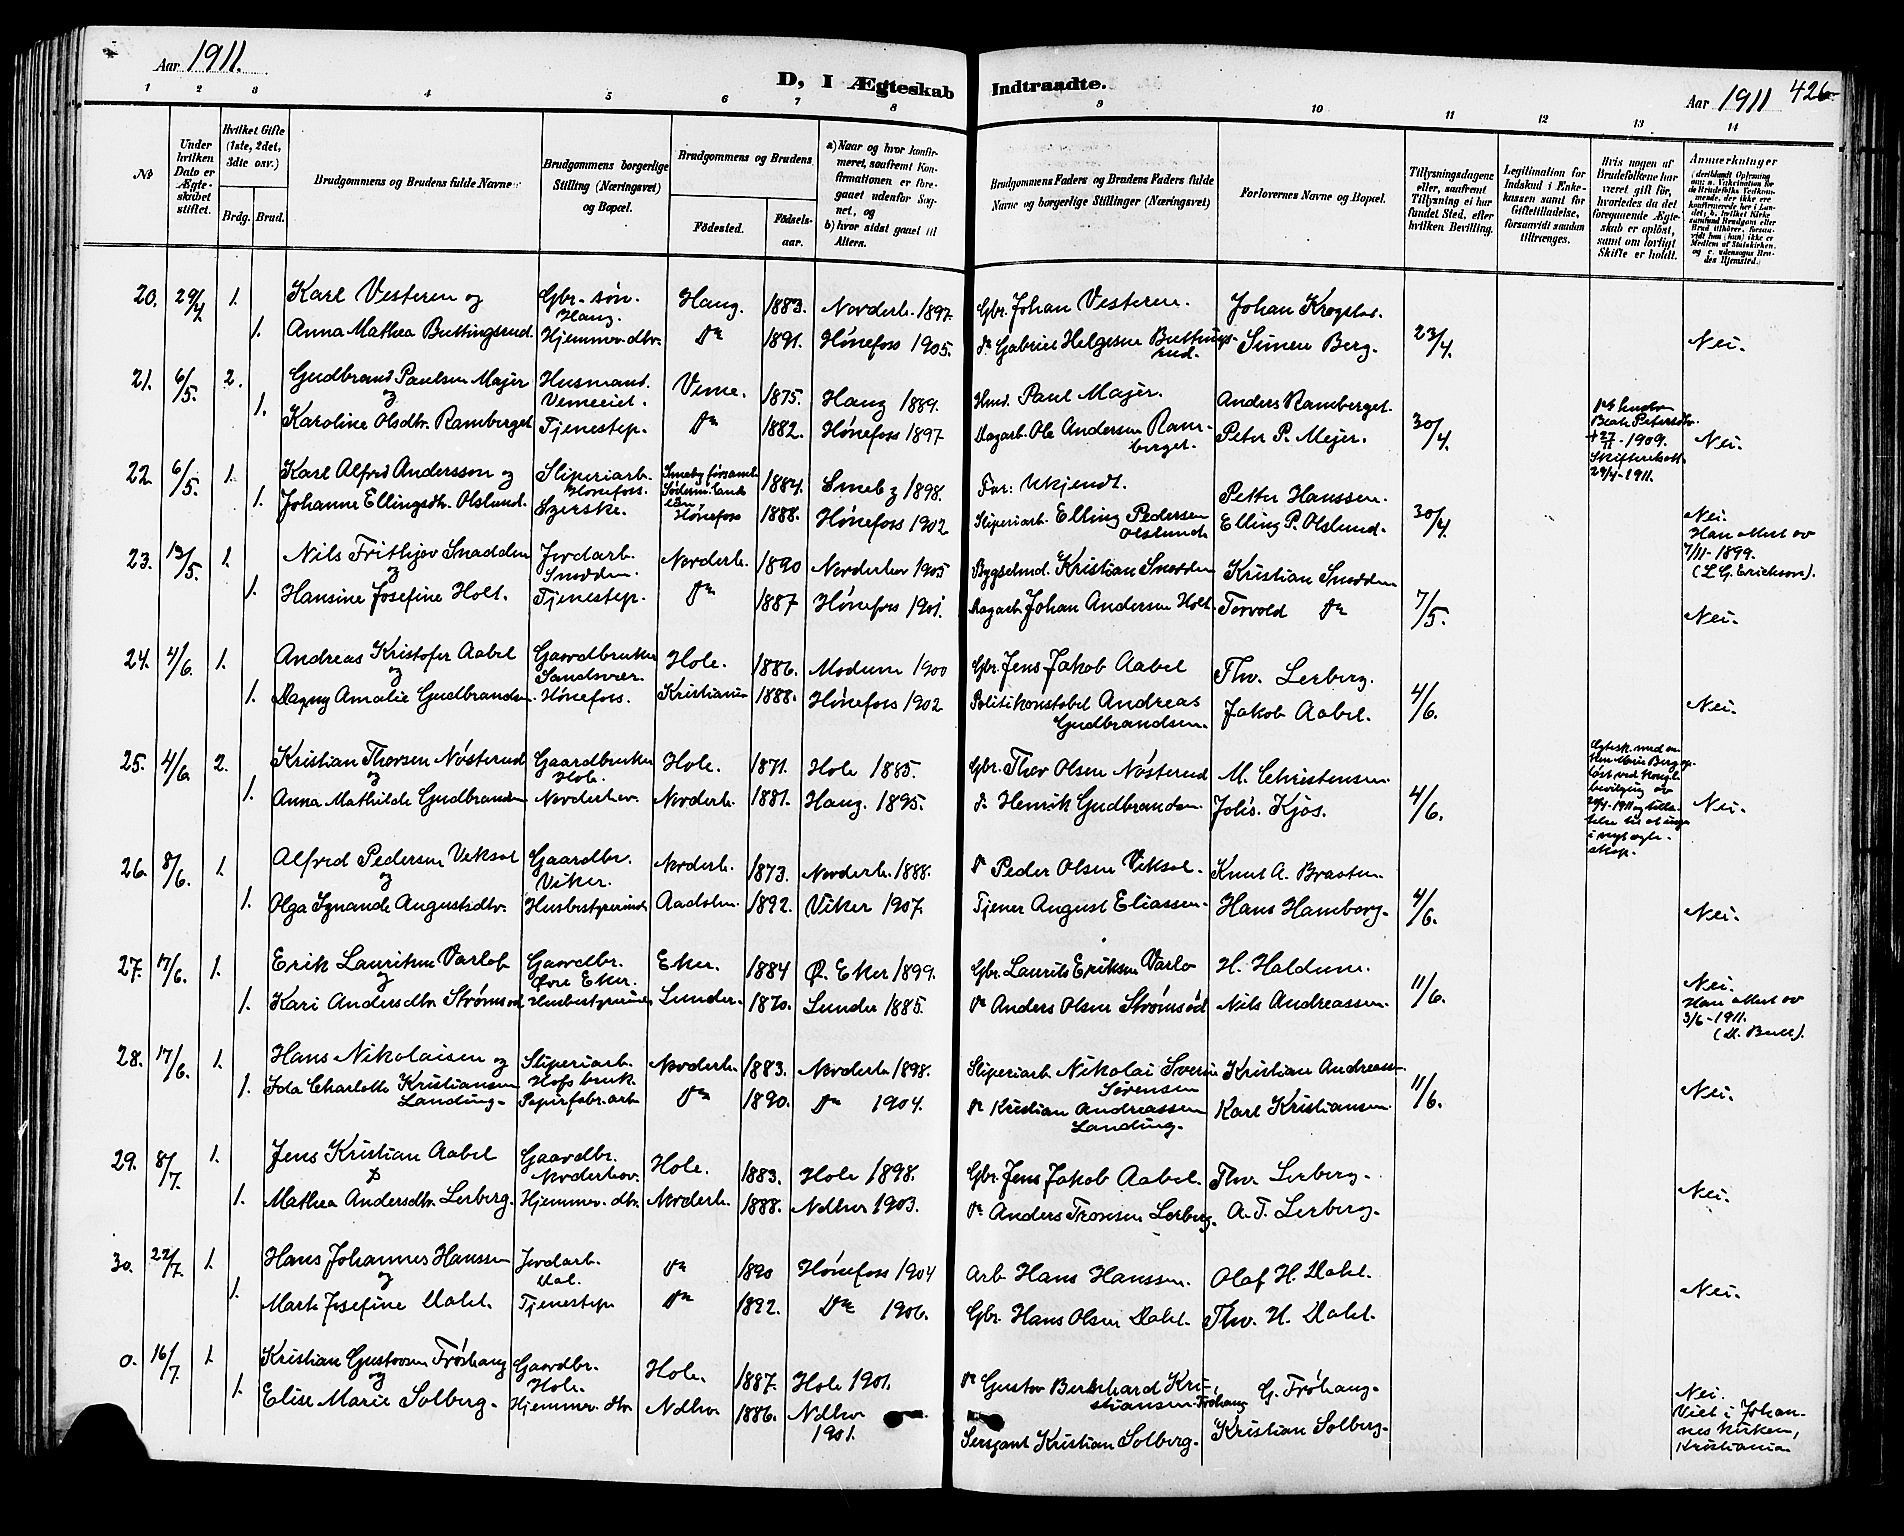 Aar 1911.
D, I Ægteskab Indtraadte.
Aar 1911
426
1 2 3 4 5 6 7 8 9 10 11 12 13 14
No
Under hvilken Dato er Ægteskabet stiftet.
Hvilket Gifte (1ste, 2det, 3die osv.)
Brdg. Brud.
Brudgommens og Brudens fulde Navne.
Brudgommens borgerlige Stilling (Næringsvei) og Bopæl.
Brudgommens og Brudens
Fødested.
Fødselsaar.
a) Naar og hvor konfirmeret, saafremt Konfirmationen er foregaaet udenfor Sognet, og
b) hvor sidst gaaet til Alters.
Brudgommens Faders og Brudens Faders fulde Navne og borgerlige Stillinger (Næringsvei)
Forlovernes Navne og Bopæl.
Tillysningsdagene eller, saafremt Tillysning ei har fundet Sted, efter hvilken Bevilling.
Legitimation for Indskud i Enkekassen samt for Giftetilladelse, forsaavidt saadan tiltrænges.
Hvis nogen af Brudefolkene har været gift før, hvorledes da det foregaaende Ægteskab er opløst, samt om lovligt Skifte er holdt.
Anmærkninger
20. 29/4 1. Karl Vesteren og Gbr.-søn. Haug. Haug. 1883. Norderh. 1897. Gbr. Johan Vesteren. Johan Krogstad.
1. Anna Mathea Buttingsrud. Hjemmev. dtr. Do 1891. Hønefoss 1905. Do Gabriel Helgesen Buttingsrud. Simen Berg. 23/4. Nei.
21. 6/5. 2. Gudbrand Paulsen Majer og Husmand. Vemeeiet. Veme. 1875. Haug 1889. Hmd. Paul Majer. Anders Ramberget.
1. Karoline Olsdtr. Ramberget Tjenestep. Do 1882. Hønefoss 1897 Dagarb. Ole Andersen Ramberget. Peter P. Mejer. 30/4. Beate Petersdtr. + 27/11-1909. Skifteretsatt. 29/4-1911. Nei.
22. 6/5. 1. Karl Alfred Andersson og Sliperiarb. Hønefoss. Smeby församl. Södermanlands län. 1884. Smeby 1898. Far: Ukjendt. Petter Hanssen.
1. Johanne Ellingsdtr. Olslund. Syerske. Hønefoss 1888. Hønefoss 1902 Sliperiarb. Elling Pedersen Olslund. Elling P. Olslund. 30/4. Nei. Han attest av 7/11-1899. (L. G. Erickson).
23. 13/5. 1. Nils Frithjov Snadden og Jordarb. Snadden. Norderh. 1890 Norderhov 1905 Bygselmd. Kristian Snadden Kristian Snadden
1. Hansine Josefine Holt. Tjenestep. Do 1887 Hønefoss 1901. Dagarb. Johan Andersen Holt. Torvald Do 7/5. Nei.
24. 4/6. 1. Andreas Kristofer Aabel og Gaardbruker Sandsvær. Hole. 1886. Modum 1900 Gbr. Jens Jakob Aabel Thv. Lerberg.
1. Dagny Amalie Gudbrandsen Hønefoss. Kristiania 1888. Hønefoss 1902 Politikonstabel Andreas Gudbrandsen. Jakob Aabel. 4/6. Nei.
25. 4/6. 2. Kristian Thorsen Nøsterud og Gaardbruker Hole. Hole. 1871. Hole 1885. Gbr. Thor Olsen Nøsterud M. Christensen.
1. Anna Mathilde Gudbrandsen Norderhov. Norderh. 1881. Haug. 1895. Do Henrik Gudbrandsen. Johs. Kjos. 4/6. Nei.
26. 8/6. 1. Alfred Pedersen Veksal og Gaardbr. Viker. Norderh. 1873. Norderh. 1888. Do Peder Olsen Veksal. Knut A. Braaten.
1. Olga Ignande Augustsdtr. Husbestyrerinde Aadalen. 1892. Viker 1907. Tjener August Eliassen. Hans Hamborg. 4/6. Nei.
27. 17/6. 1. Erik Lauritsen Varlo og Gaardbr. Øvre Eker. Eker. 1884 Ø. Eker 1899. Gbr. Laurits Eriksen Varlo H. Haldum.
1. Kari Andersdtr. Strømsød Husbestyrerinde Lunder. 1870. Lunder 1885. Do Anders Olsen Strømsød Nils Andreassen. 11/6. Nei. Han attest av 3/6-1911. (Bull).
28. 17/6. 1. Hans Nikolaisen og Sliperiarb. Hofsbruk Norderh. 1883. Norderh. 1898. Sliperiarb. Nikolai Sverin Sørensen Kristian Andreassen
1. Ida Charlotte Kristiansen Landing. Papirfabr.arb. Do 1890. Do 1904. Do Kristian Andreassen Landing. Karl Kristiansen. 11/6. Nei.
29. 8/7. 1. Jens Kristian Aabel Gaardbr. Norderhov. Hole. 1883. Hole 1898. Gbr. Jens Jakob Aabel. Thv. Lerberg.
1. Mathea Andersdtr. Lerberg. Hjemmev. dtr. Norderh. 1888. Ndhov 1903. Do Anders Tronsen Lerberg. A. T. Lerberg. Nei.
30. 22/7. 1. Hans Johannes Hanssen og Jordarb. Dal. Do 1890 Hønefoss 1904 Arb. Hans Hanssen. Olaf H. Dahl.
1. Josefine Dahl. Tjenestep. Do 1892. Do 1906. Gbr. Hans Olsen Dahl. Thv. H. Dahl. Nei.
0. 16/7. 1. Kristian Gustavsen Frøshaug og Gaardbr. Hole. Hole. 1887. Hole 1901. Do Gustav Bernhard Kristiansen Frøhaug G. Frøhaug.
1. Elise Marie Solberg. Hjemmev. dtr. Ndhov 1886. Ndhov 1901. Sersjant Kristian Solberg. Kristian Solberg. Nei. Viet i Johannes kirken, Kristiania